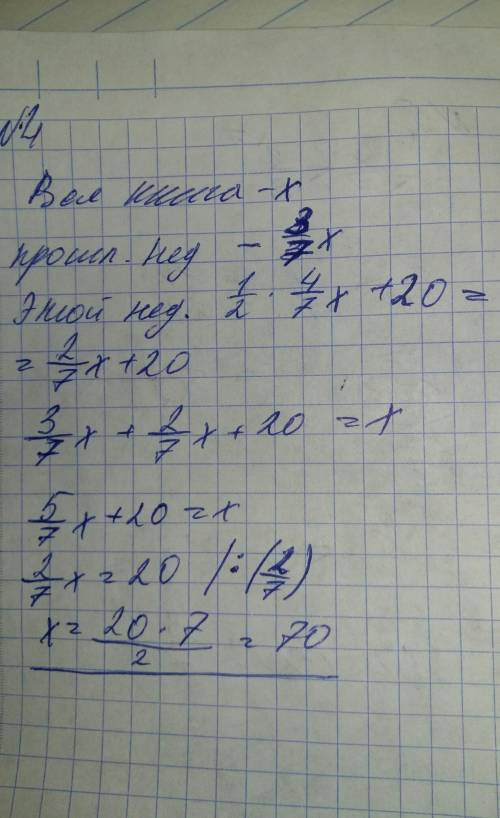 №4
Вся книга - x
прошл. нед - 3/7 x
Этой нед. 1/2 · 4/7 x + 20 =
= 2/7 x + 20
3/7 x + 2/7 x + 20 = x
5/7 x + 20 = x
2/7 x = 20 | : (2/7)
x = 20 · 7 / 2 = 70